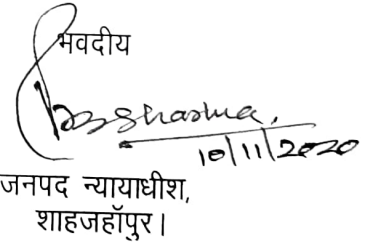 भवदीय
Sharma.
10/11/2020
जनपद न्यायाधीश,
शाहजहॉपुर।